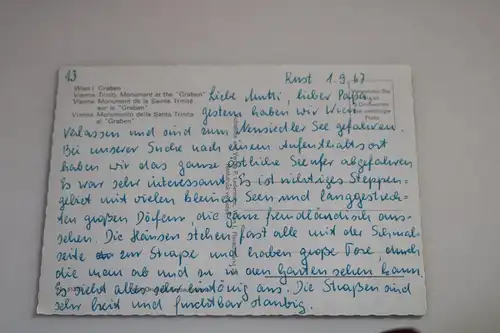 13
Rust 1.9.67
Wien I. Graben
Vienna Trinity Monument at the "Graben"
Vienne Monument de la Sainte Trinité
sur le "Graben"
Vienna Monumento della Santa Trinita
al "Graben"
Liebe Mutti, lieber Papa,
gestern haben wir Wien
verlassen und sind zum Neusiedler See gefahren.
Bei unserer Suche nach einem Aufenthaltsort
haben wir das ganze östliche Seeufer abgefahren
Es war sehr interessant. Es ist richtiges Steppen-
gebiet mit vielen kleinen Seen und langgestreck-
ten großen Dörfern, die ganz fremdländisch aus-
sehen. Die Häuser stehen fast alle mit der Schmal-
seite zur Straße und haben große Tore, durch
die man ab und zu in den Garten sehen kann.
Es sieht alles sehr eintönig aus. Die Straßen sind
sehr breit und furchtbar staubig.